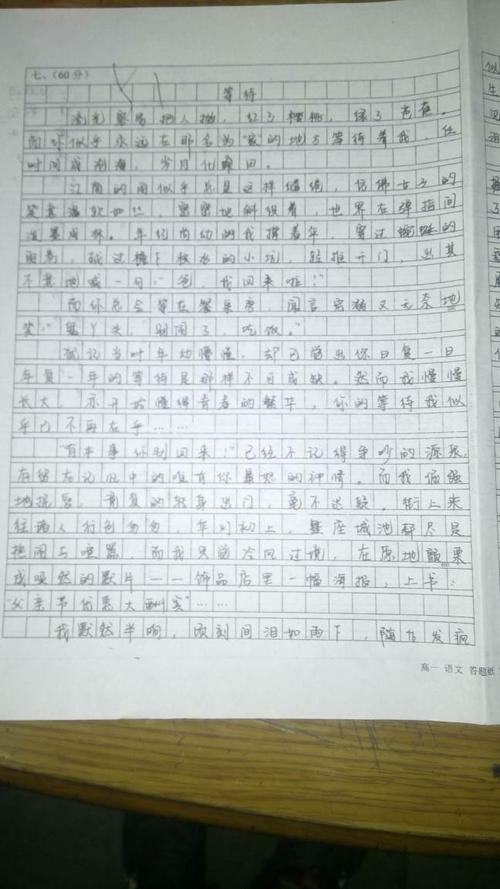 七、(60分)
等待
流光容易把人抛，红了樱桃，绿了芭蕉。
而你似乎永远在那名为“家”的地方等待着我，任
时间成，岁月化。
江南的雨似乎总是这样缠绵，仿佛女子的
，密密地斜织着，世界在弹指间
。年纪尚幼的我撑着伞，穿过蜿蜒的
雨巷，跳过檐下积水的小坑，轻推开门，出其
不意地喊一句：“爸，我回来啦！”
而你总会等在餐桌旁，闻言宠溺又无奈地
笑：“臭丫头，别闹了，吃饭。”
犹记当时年幼懵懂，却已觉出你日复一日
年复一年的等待是那样不可或缺。然而我慢慢
长大，亦开始懂得青春的繁华，你的等待我似
乎已不再在乎……
“有本事你别回来！”已经不记得争吵的源头，
存留在记忆中的唯有你的神情。而我倔强
地，转身出门，毫不迟疑。街上来
往路人行色匆匆，车灯初上，整座城池都尽是
热闹与喧嚣，而我只能冷风过境，在原地颤栗
成喑然的默片——饰品店里一幅海报，上书：
“父亲节优惠大酬宾”……
我默然半晌，顷刻间泪如雨下，随后发疯
高一 语文 答题纸